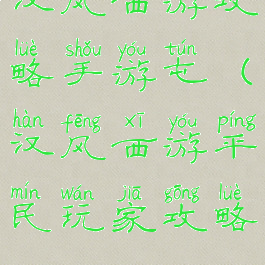 汉风西游攻
lüè shǒu yóu tún
略手游屯（
hàn fēng xī yóu píng
汉风西游平
mín wán jiā gōng lüè
民玩家攻略